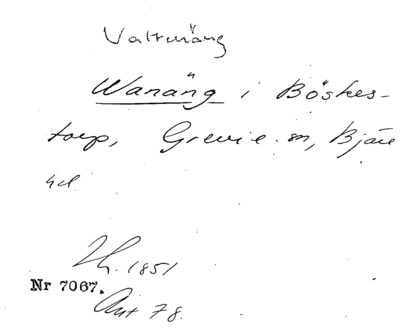 Valtmäng
Wanäng i Böskes-
torp, Grevie sn, Bjäre
hd
Th. 1851
Nr 7067.
Ant 78.